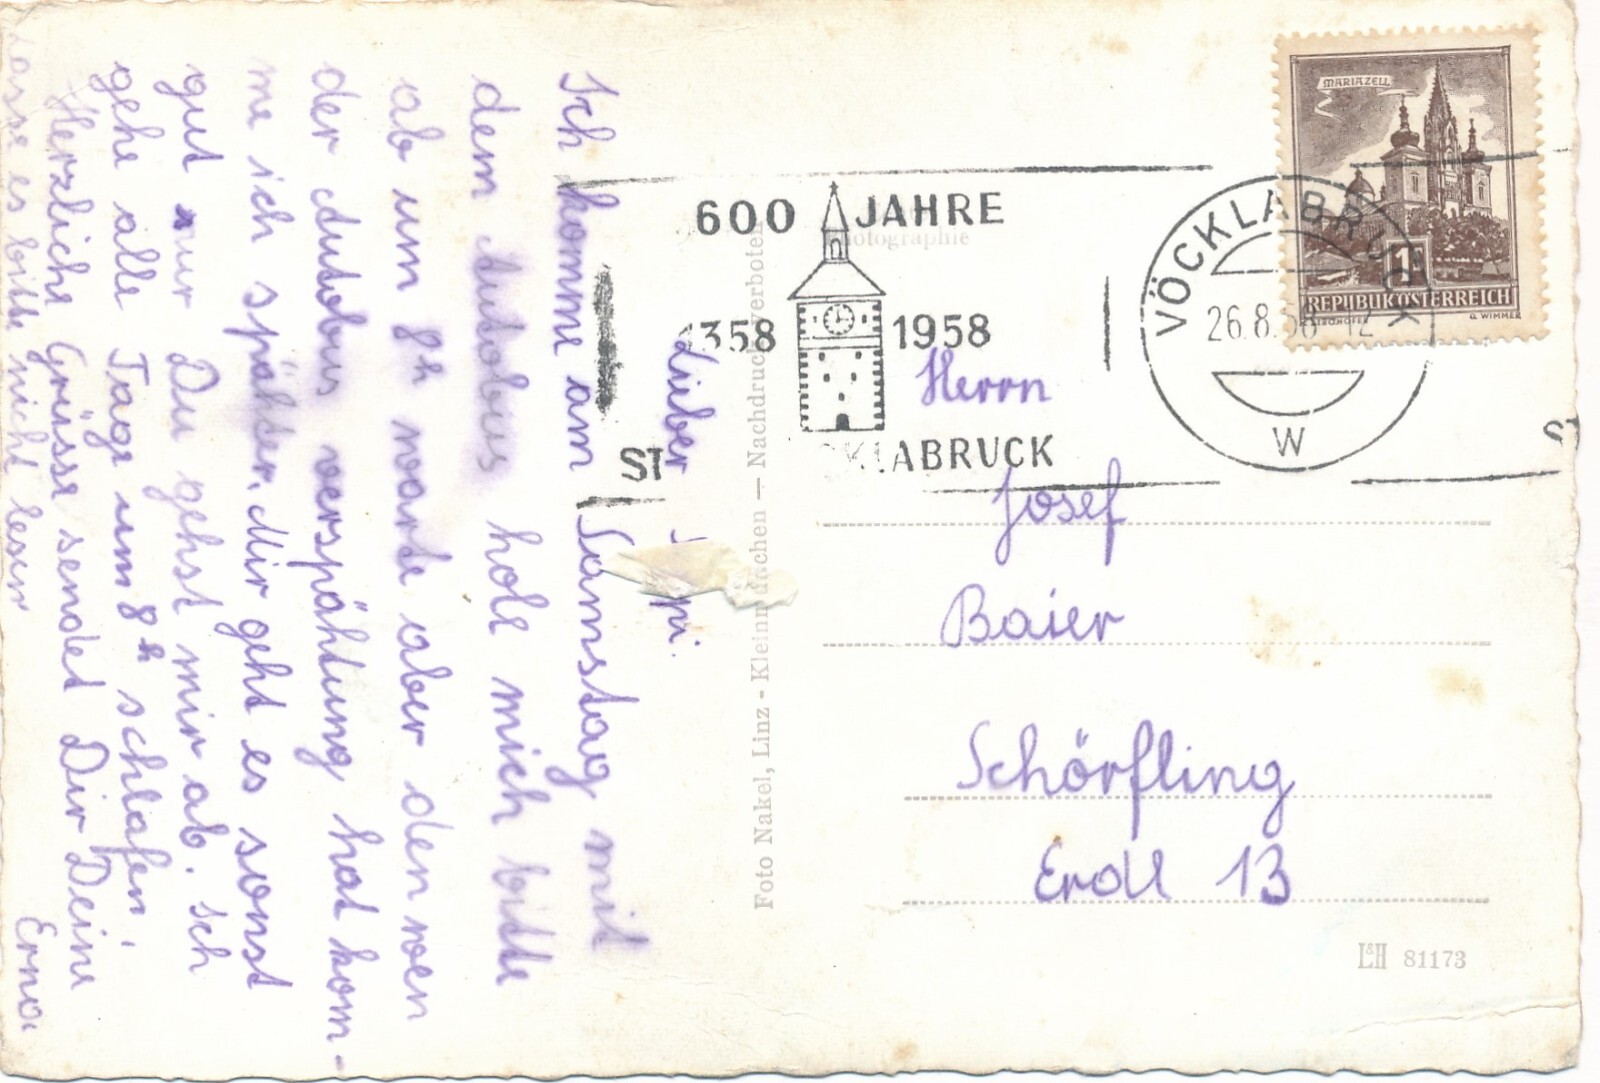 Lieber
Ich komme am Samstag mit
dem Autobus hole mich bitte
ab um 8h warte aber den wen
der Autobus verspähtung hat kom-
me ich spähter. Mir geht es sonst
gut nur Du gehst mir ab. Ich
gehe alle Tage um 8h schlafen.
Herzliche Grüsse sendet Dir Deine
Erna
lasse es bitte nicht lesen
Foto Nakel, Linz - Kleinmünchen — Nachdruck verboten
Photographie
600 JAHRE
1358 1958
ST
KLABRUCK
VÖCKLABRUCK
26.8.58 12
W
ST
MARIAZELL
1
REPUBLIK ÖSTERREICH
G. WIMMER
Herrn
Josef
Baier
Schörfling
Erdll 13
L&H 81173